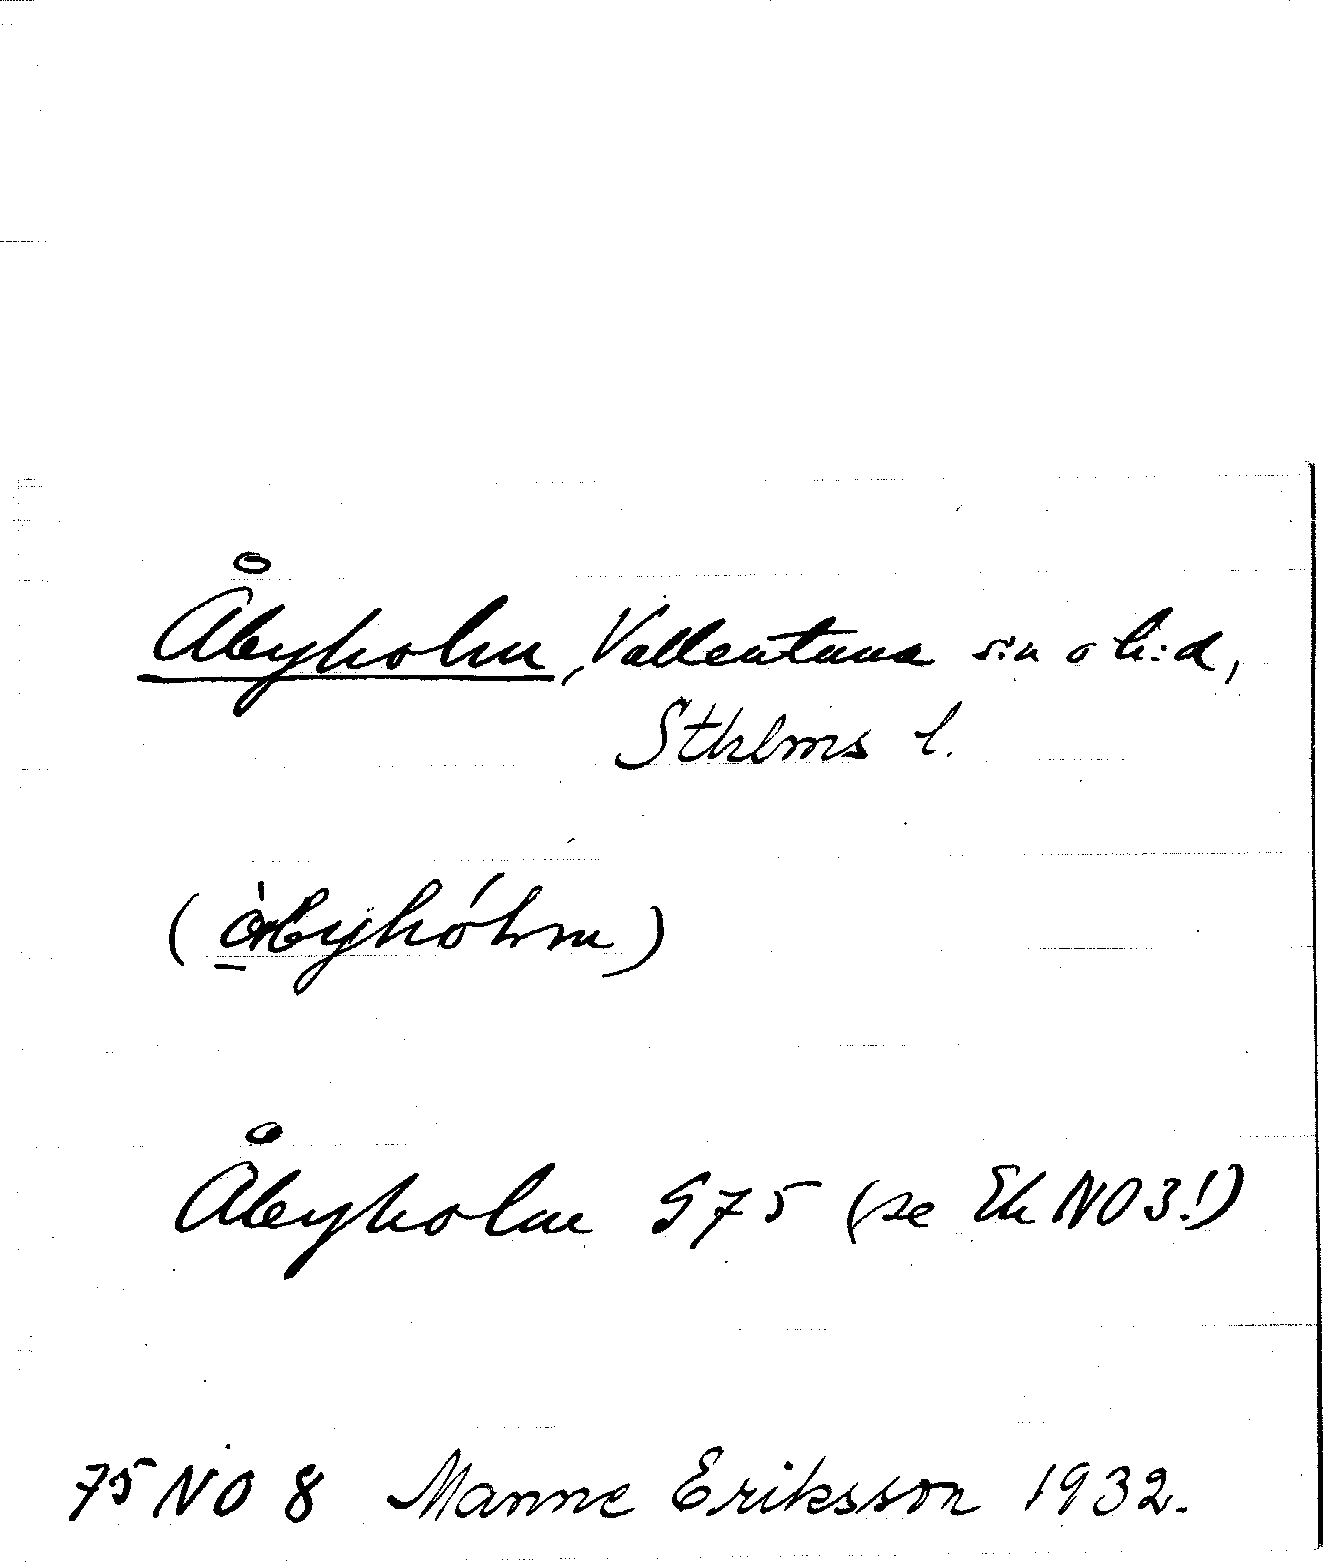 Åbyholm, Vallentuna s:n o h:d,
Sthlms l.
(òbyhólm)
Åbyholm G75 (se Ek NO3!)
75 NO 8 Manne Eriksson 1932.